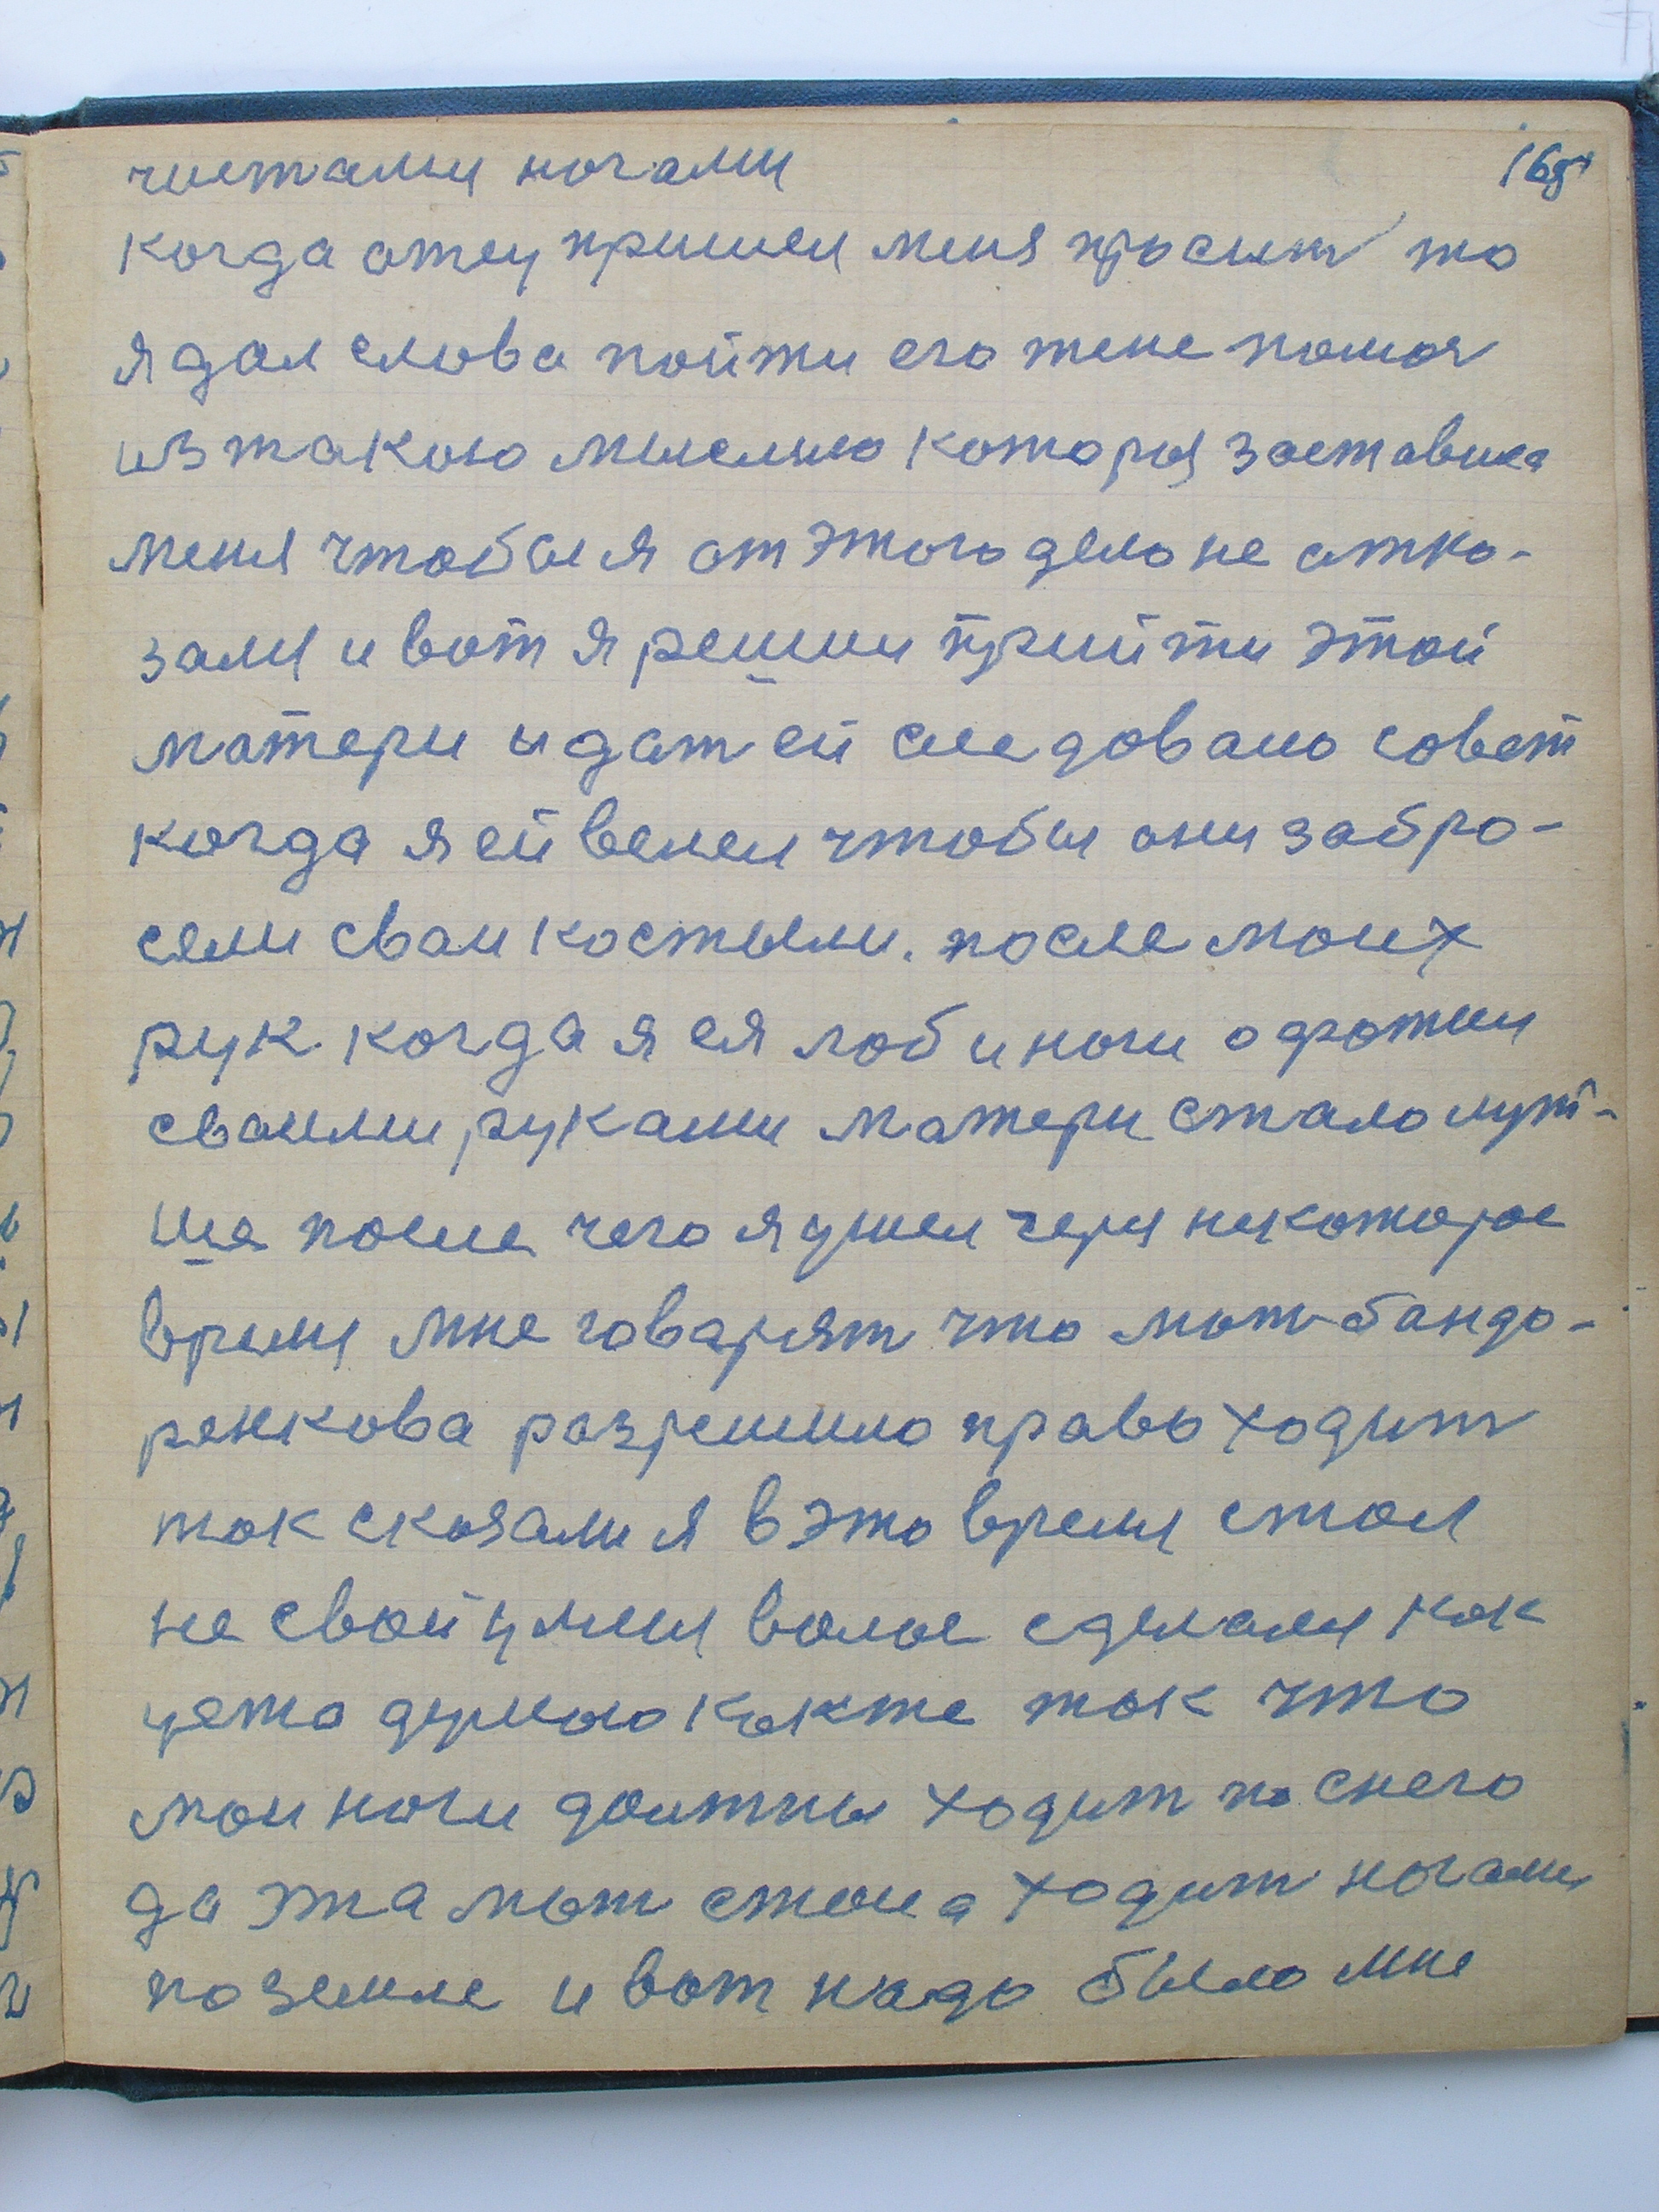 168
чистами ногами
когда отец пришел меня просит то
я дал слова пойти его жене помоч
из такою мыслию которая заставила
меня чтобы я от этого дела не отка-
зался и вот я решил прийти этой
матери и дат ей следовало совет
когда я ей велел чтобы они забро-
сели сваи костыли. после моих
рук когда я ея лоб и ноги
сваими руками матери стало лут-
ше после чего я ушел черя некоторое
время мне говарят что мат бандо-
ренкова разрешило право ходит
так сказали я в это время стал
не свой у меня волос сделался как
у ето думаю как же так что
мои ноги должны ходит по снего
да эта мат стала ходит ногами
по земле и вот надо было мне